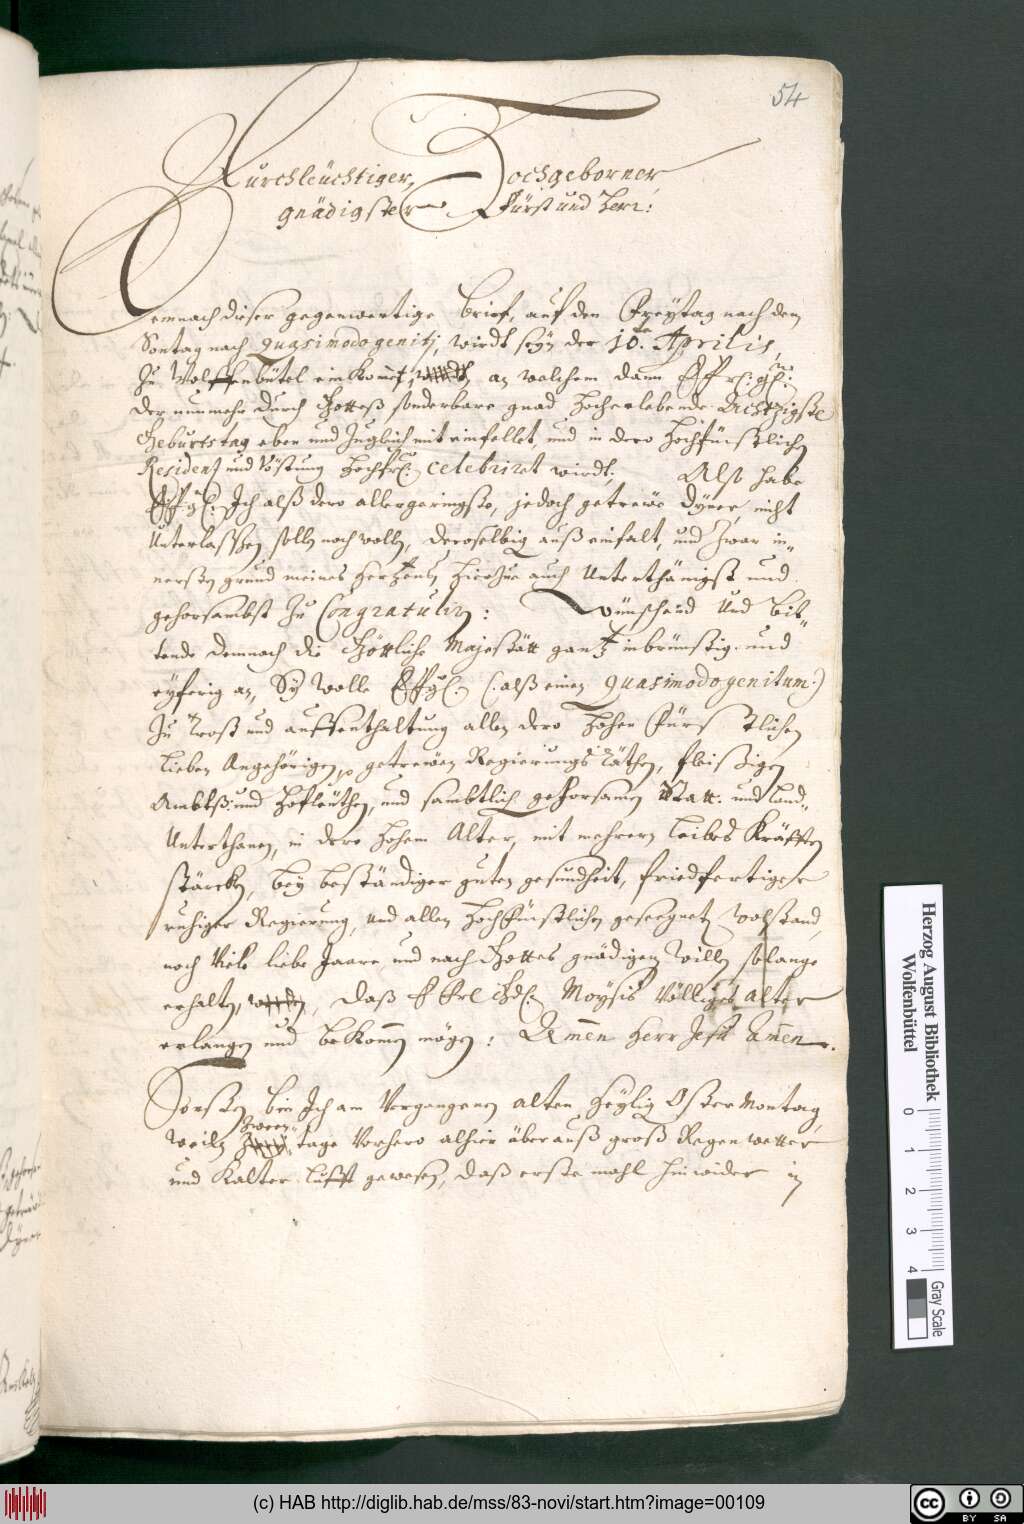 54
Durchleüchtiger, Hochgeborner
gnädigster Fürst und Herr:
Demnach dieser gegenwertige brief, auf den Freÿtag nach dem
Sontag nach quasimodogenitj, wirdt seÿn der 10te Aprilis,
Zu Wolffenbütel einkomt, an welchem dann
der nunmehr durch Gottes sonderbare gnad Hocherlebende Achtzigste
Geburtstag eben und Zugleich mit einfellet, und in dero Hochfürstlichen
Residentz und Vöstung Hochfrl: celebrirt wirdt; Also habe
Ich alß dero allergeringste, jedoch getrewe Dÿner, nicht
Unterlassen solln noch wolln, deroselbig auß einfalt, und Zwar in„
nersten grund meines Hertzens, hierZue auch Unterthänigst und
gehorsambst Zu Congratulirn: Wünschend Und bit„
tende demnach die Göttliche Majestätt gantz inbrünstig und
eÿferig an, Sÿ wolle (: alß einen quasimodogenitum:)
Zu Trost und auffenthaltung allen dero Hohen Fürstlichen
Lieben Angehörigen, getrewen Regierungs Räthen, fleissigen
Ambtß: und Hofleüthen, und sambtlich gehorsamen Statt: und Land„
Unterthanen, in dero Hohem Alter, mit mehrern leibes Kräfften
stärcken, beÿ beständiger guten gesundheit, friedfertiger
ruhiger Regierung, und allen Hochfürstlichen gesegneten wolstand,
noch Viele liebe Jaare und nach Gottes gnädigen willen solange
erhalten, daß Moÿsis Völliges alter
erlangen und bekomen mögen: Amen Herr Jesu Amen.
Sonsten bin Ich am Vergangenen alten Heÿlig Ostermontag,
weiln Zween tage Vorhero alhier überauß groß Regenwetter
und Kalter lufft gewesen, daß erste mahl hinwider in
Herzog August Bibliothek
Wolfenbüttel
0 1 2 3 4
Gray Scale
(c) HAB http://diglib.hab.de/mss/83-novi/start.htm?image=00109
cc BY SA